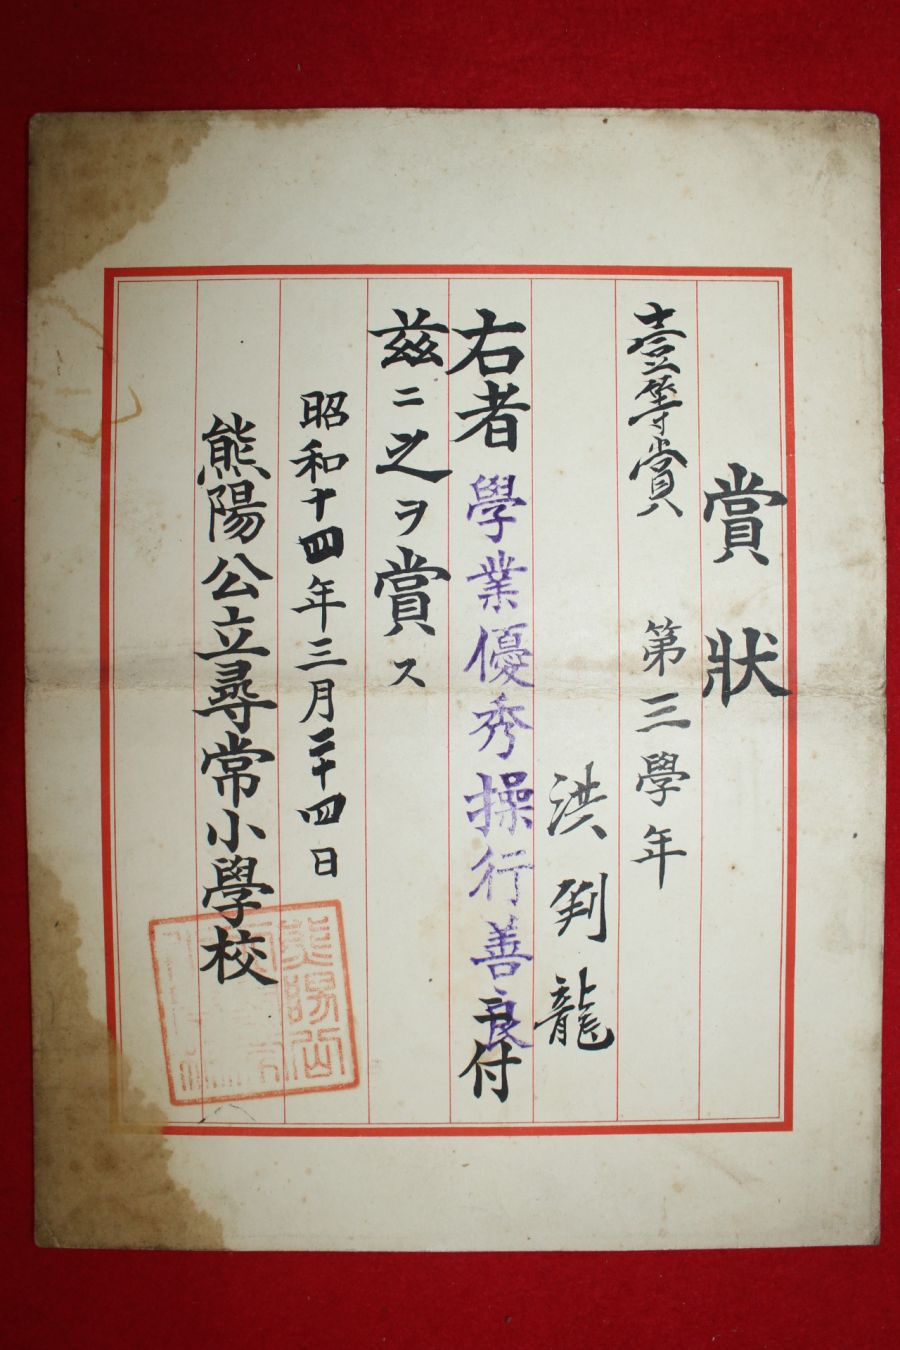 賞狀
壹等賞 第三學年
洪判龍
右者學業優秀操行善良ニ付
玆ニ之ヲ賞ス
昭和十四年三月二十四日
熊陽公立尋常小學校